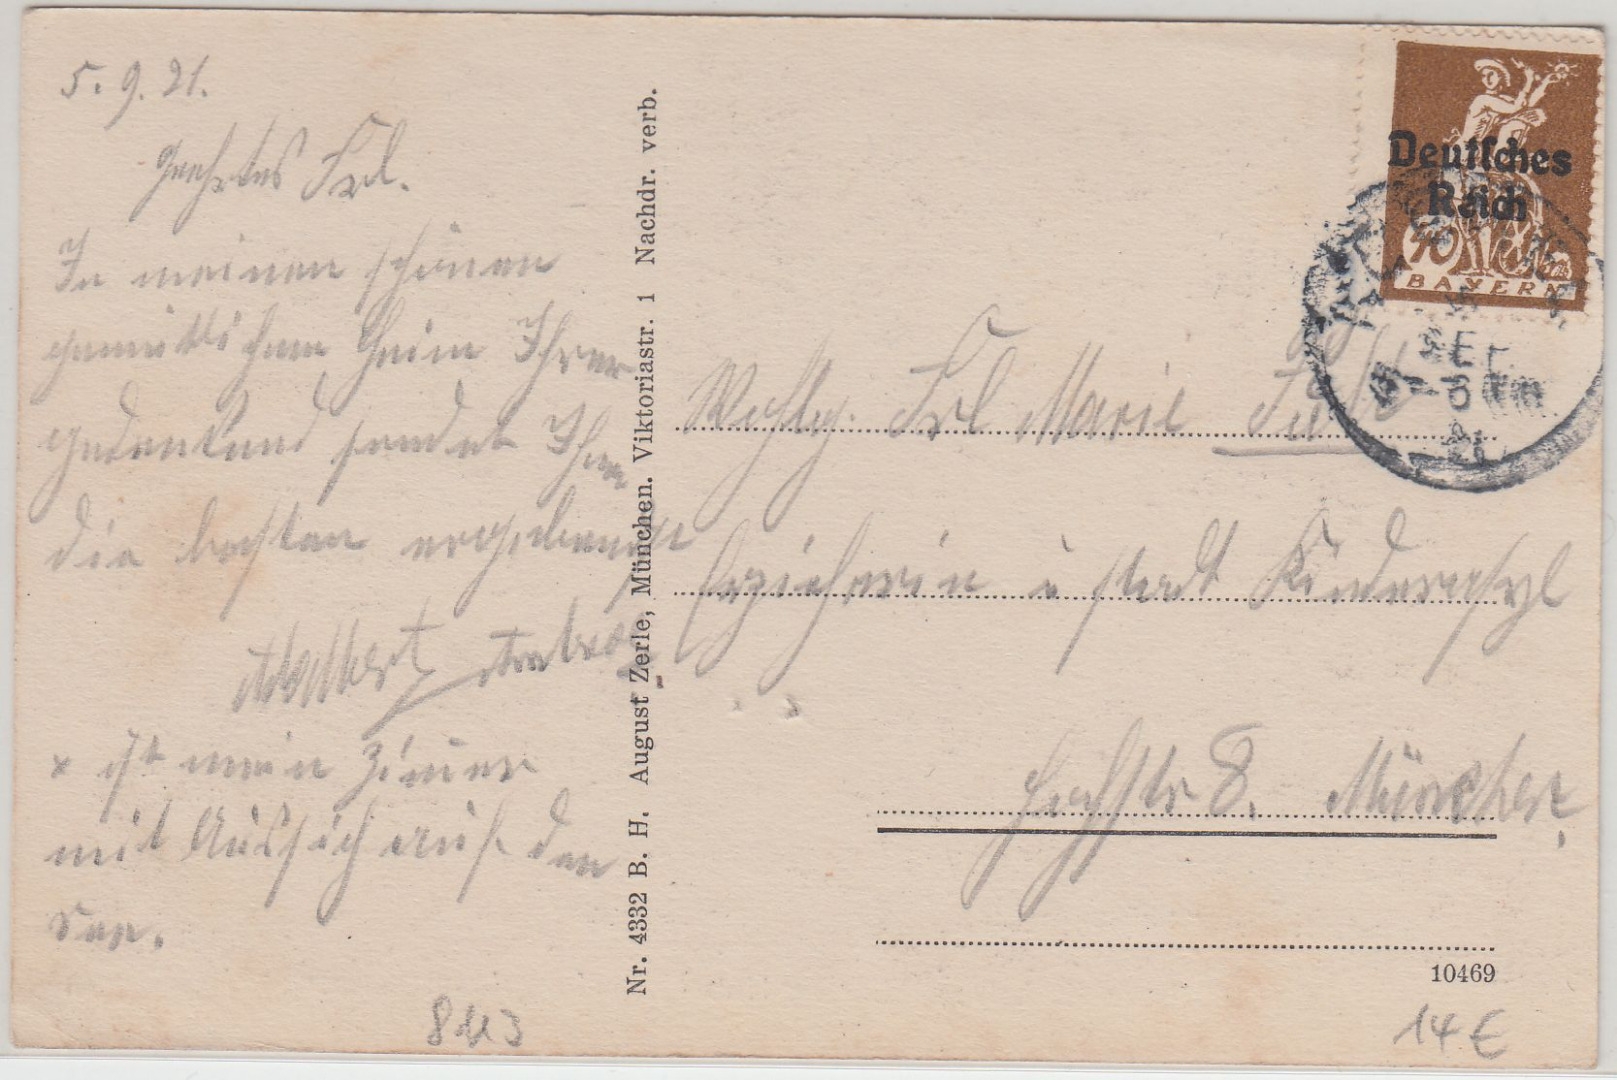 5. 9. 21.
Geehrtes Frl.
In meinen schönen
gemütlichen Heim Ihrer
gedenkend sendet Ihnen
die besten
x ist mein Zimmer
mit Aussich auf den
See.
843
Nr. 4332 B. H. August Zerle, München. Viktoriastr. 1 Nachdr. verb.
Deutsches
Reich
BAYERN
SEP
21
Wohlg. Frl Marie
Erzieherin i städt Kinderasyl
Hochstr 8. München.
10469
14 €